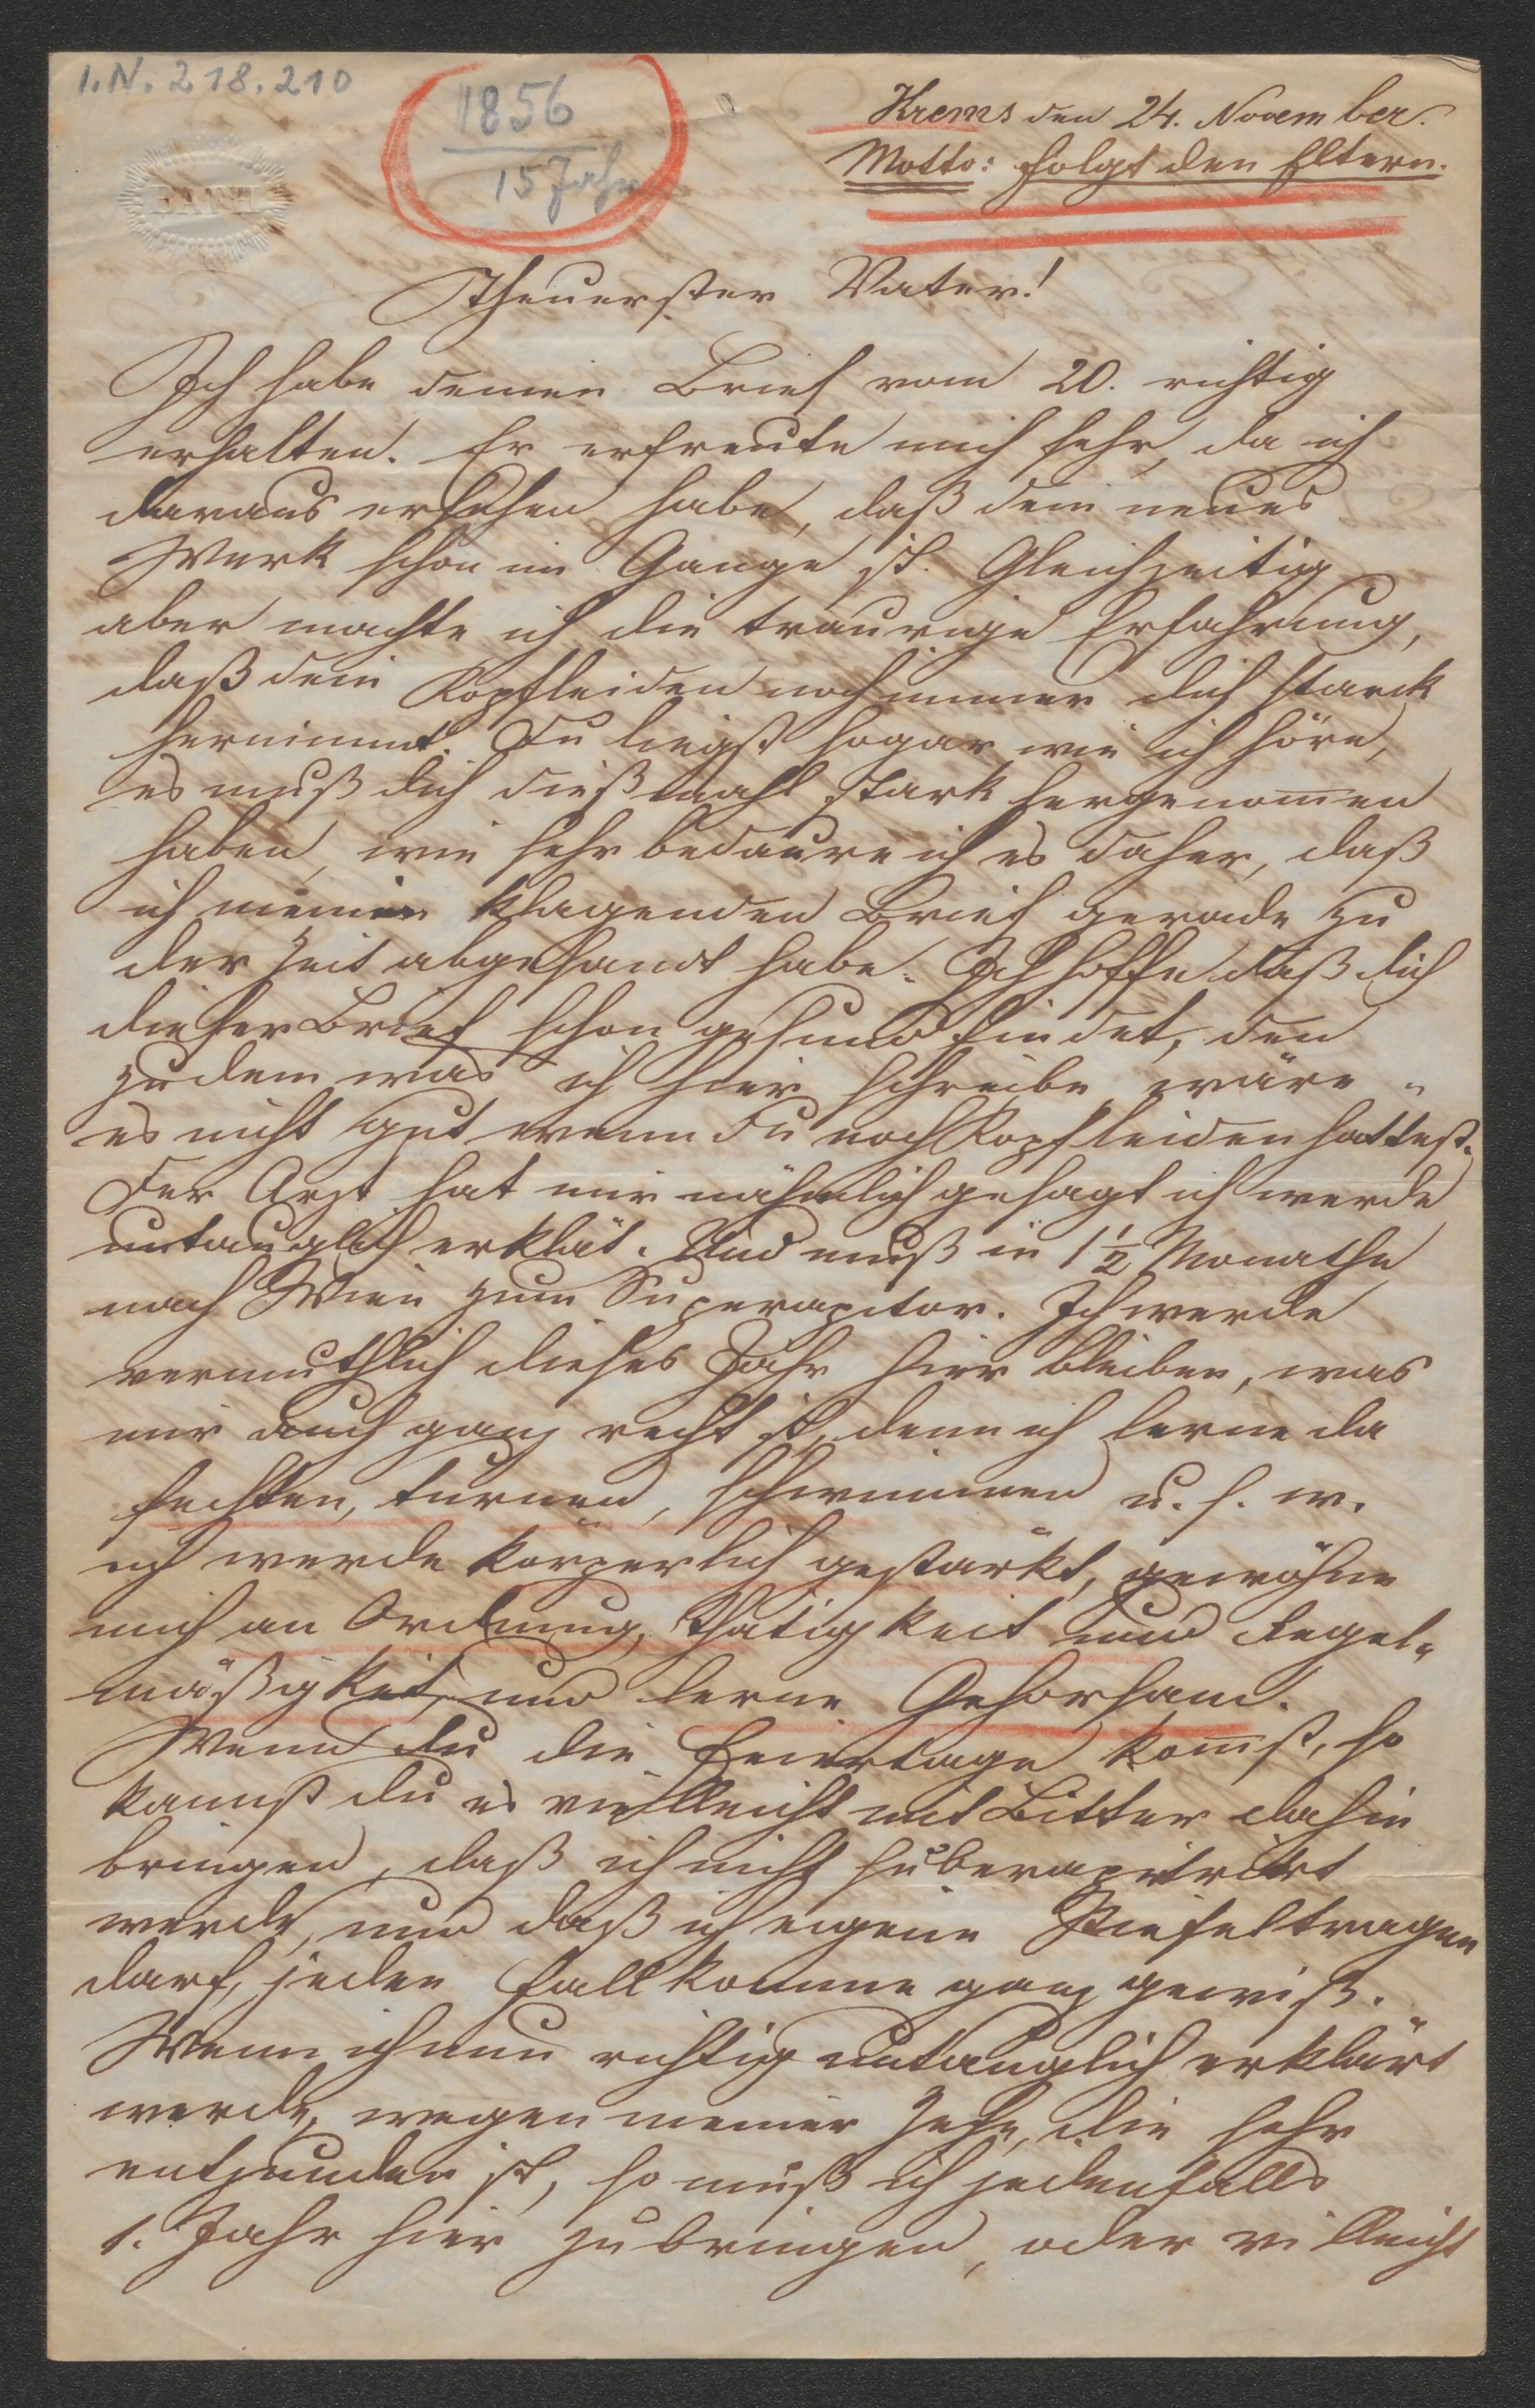 I.N. 218.210
1856
15 Jahr
Krems den 24. November.
Motto: Folgt den Eltern.
BATH
Theuerster Vater!
Ich habe deinen Brief vom 20. richtig
erhalten. Er erfreute mich sehr, da ich
daraus ersehen habe, daß dein neues
Werk schon im Gange ist. Gleichzeitig
aber machte ich die traurige Erfahrung,
daß dein Kopfleiden noch immer dich starck
hernimmt. Du liegst sogar wie ich höre,
es muß dich dießmahl stark hergenomen
haben, wie sehr bedaure ich es daher, daß
ich meinen klagenden Brief gerade zu
der Zeit abgesandt habe. Ich hoffe daß dich
dieser Brief schon gesund findet, den
zu dem was ich hier schreibe wäre
es nicht gut wenn du noch Kopfleiden hattest.
Der Arzt hat mir nähmlich gesagt ich werde
untauglich erklät. Und muß in 1½ Monathe
nach Wien zum Superapitor. Ich werde
vermuthlich dieses Jahr hier bleiben, was
mir auch ganz recht ist, denn ich lerne da
fechten, turnen, schwimmen u. s. w.
ich werde körperlich gestärkt, gewöhne
mich an Ordnung, Thätigkeit und Regel-
mäßigkeit, und lerne Gehorsam.
Wenn du die Feiertage komst, so
kannst du es vielleicht mit Bitten dahin
bringen, daß ich nicht superapitrirt
werde, und daß ich eigene Stiefel tragen
darf, jeden Fall komme ganz gewiß.
Wenn ich nun richtig untauglich erklärt
werde, wegen meiner Zehe, die sehr
entzunden ist, so muß ich jedenfalls
1. Jahr hier zubringen, oder villeicht